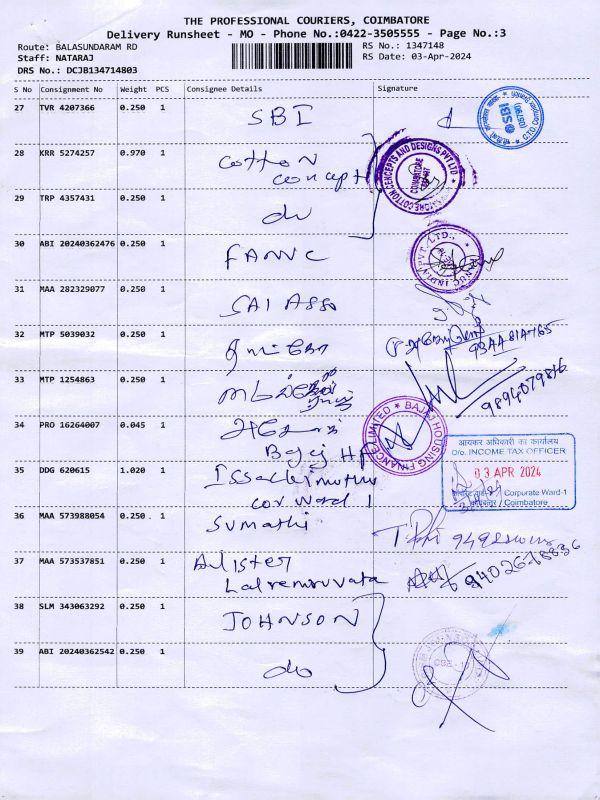 THE PROFESSIONAL COURIERS, COIMBATORE
Delivery Runsheet - MO - Phone No.:0422-3505555 - Page No.:3
Route: BALASUNDARAM RD
RS No.: 1347148
Staff: NATARAJ
RS Date: 03-Apr-2024
DRS No.: DCJB134714803
S No Consignment No Weight PCS Consignee Details Signature
27 TVR 4207366 0.250 1 SBI
SBI
28 KRR 5274257 0.970 1 Cotton
Concept
COTTON CONCEPTS AND DESIGNS PVT LTD
COIMBATORE
29 TRP 4357431 0.250 1 do
30 ABI 20240362476 0.250 1 FANUC
31 MAA 282329077 0.250 1 SAI ASSO
32 MTP 5039032 0.250 1
33 MTP 1254863 0.250 1
9894079816
34 PRO 16264007 0.045 1
Bajaj HF
BAJAJ HOUSING FINANCE LIMITED
35 DDG 620615 1.020 1 Issakkimuthu
Cor ward 1
आयकर अधिकारी का कार्यालय
O/o. INCOME TAX OFFICER
03 APR 2024
Corporate Ward-1
Coimbatore
36 MAA 573988054 0.250 . 1 Sumathi
37 MAA 573537851 0.250 1 Alister
Lalremruvata
9402678836
38 SLM 343063292 0.250 1 JOHNSON
39 ABI 20240362542 0.250 1 do